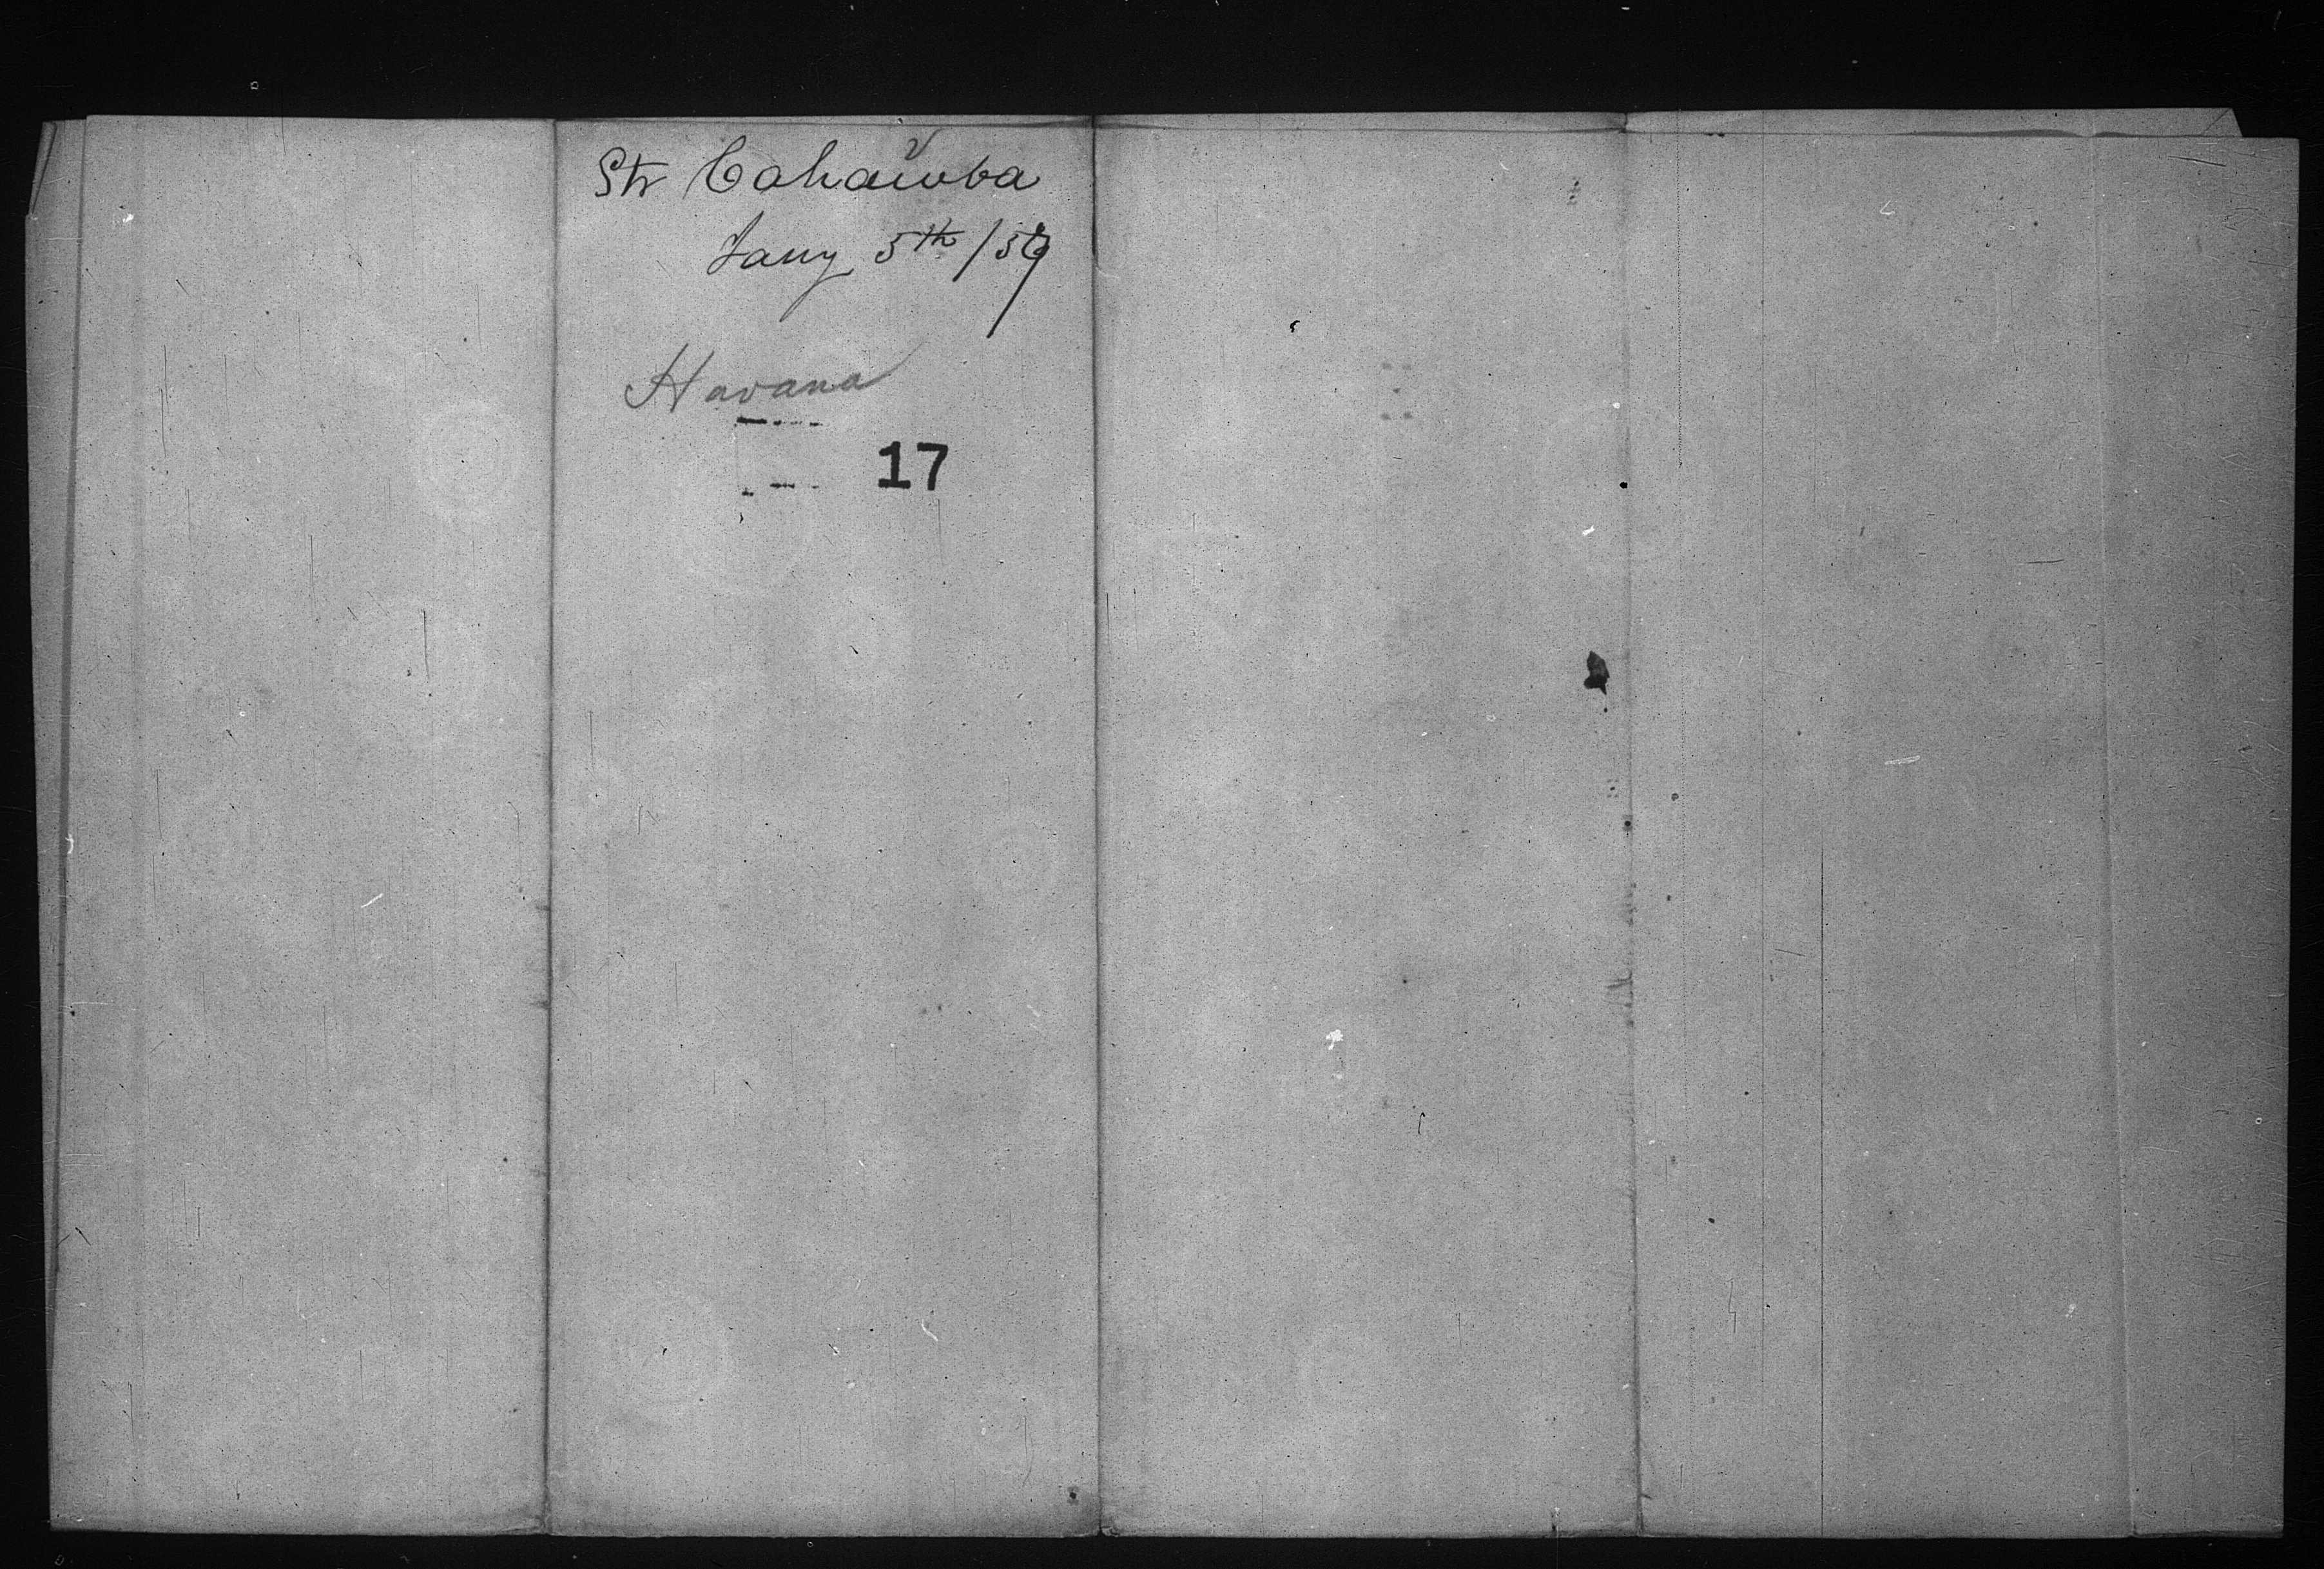 Str Cahawba
Jany 5th /59
Havana
17